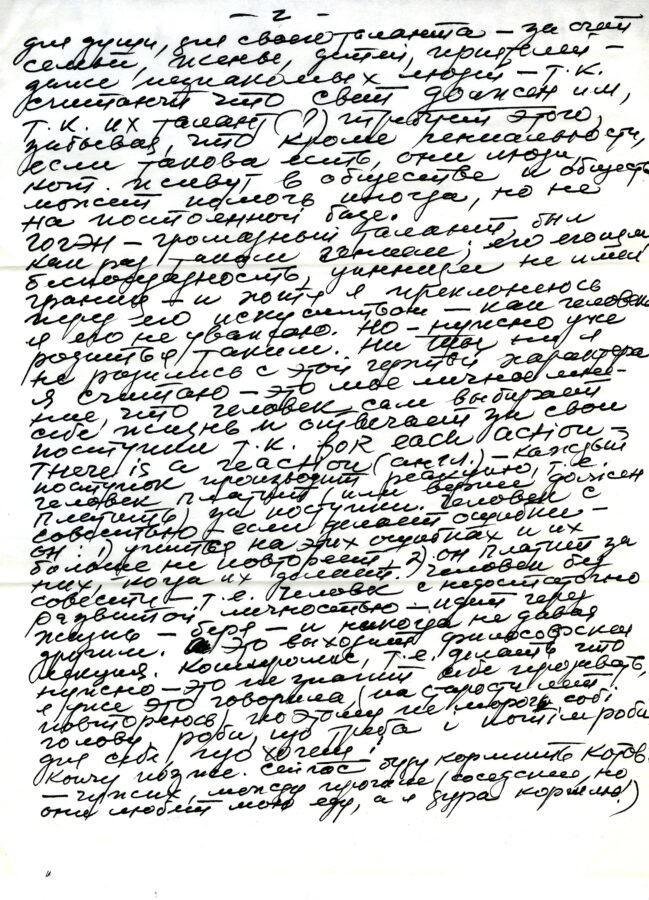 — 2 —
для души, для своего таланта — за счёт
семьи, жены, детей, приятелей —
даже незнакомых людей — т.к.
считают что свет должен им,
т.к. их талант (?) требует этого,
забывая, что кроме гениальности,
если такова есть, они люди,
кот. живут в обществе и общество
может помочь иногда, но не
на постоянной базе.
Гогэн — громадный талант, был
как раз таким гением, его эгоизм
беспощадность, унижение не имел
границ — и хотя я преклоняюсь
перед его искусством — как человека
я его не уважаю. Но — нужно уже
родиться таким. Ни ты ни я
не родились с этой чертой характера
Я считаю — это мое личное мне-
ние, что человек сам выбирает
себе жизнь и отвечает за свои
поступки т.к. for each action —
There is a reaction (англ.) — каждый
поступок производит реакцию, т.е.
человек платит (или вернее должен
платить) за поступки. Человек с
совестью — если делает ошибки —
он: 1) учиться на этих ошибках и их
больше не повторяет 2) он платит за
них, когда их делает. Человек без
совести — т.е. человек с недостаточно
развитой личностью — идет через
жизнь — беря — и никогда не давая
другим. Это выходит философская
лекция. Компромис, т.е. делать что
нужно — это не значит себе продавать,
я уже это говорила (на старости лет
повторяюсь) поэтому не морочь собі
голову, роби, що треба і потім роби
для себе, що хочеш!
Кончу позже. Сейчас буду кормить котов
— чужих, между прочим (соседские, но
они любят мою еду, а я дура кормлю!)